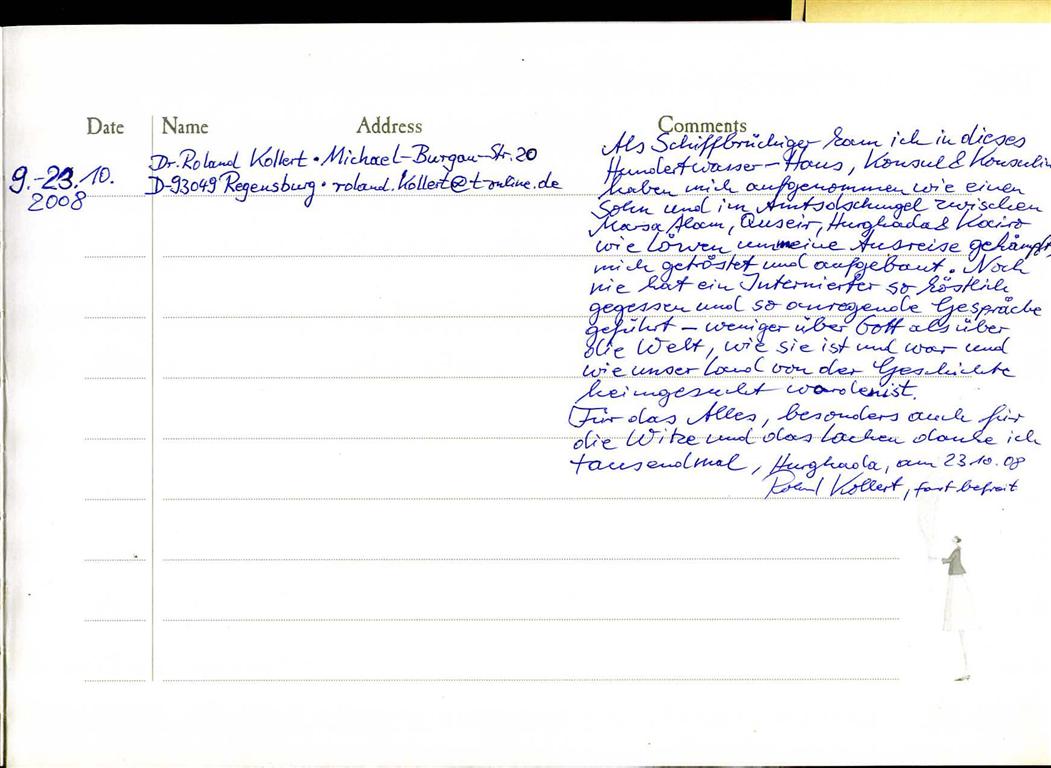 Date Name Address Comments
9.-23.10.
2008
Dr. Roland Kollert • Michael-Burgau-Str. 20
D-93049 Regensburg • roland.kollert@t-online.de
Als Schiffbrüchiger kam ich in dieses
Hundertwasser-Haus, Konsul & Konsulin
haben mich aufgenommen wie einen
Sohn und im Amtsdschungel zwischen
Marsa Alam, Quseir, Hurghada & Kairo
wie Löwen um meine Ausreise gekämpft,
mich getröstet und aufgebaut. Noch
nie hat ein Internierter so köstlich
gegessen und so anregende Gespräche
geführt – weniger über Gott als über
die Welt, wie sie ist und war und
wie unser Land von der Geschichte
heimgesucht worden ist.
Für das Alles, besonders auch für
die Witze und das Lachen danke ich
tausendmal, Hurghada, am 23.10.08
Roland Kollert, fast befreit